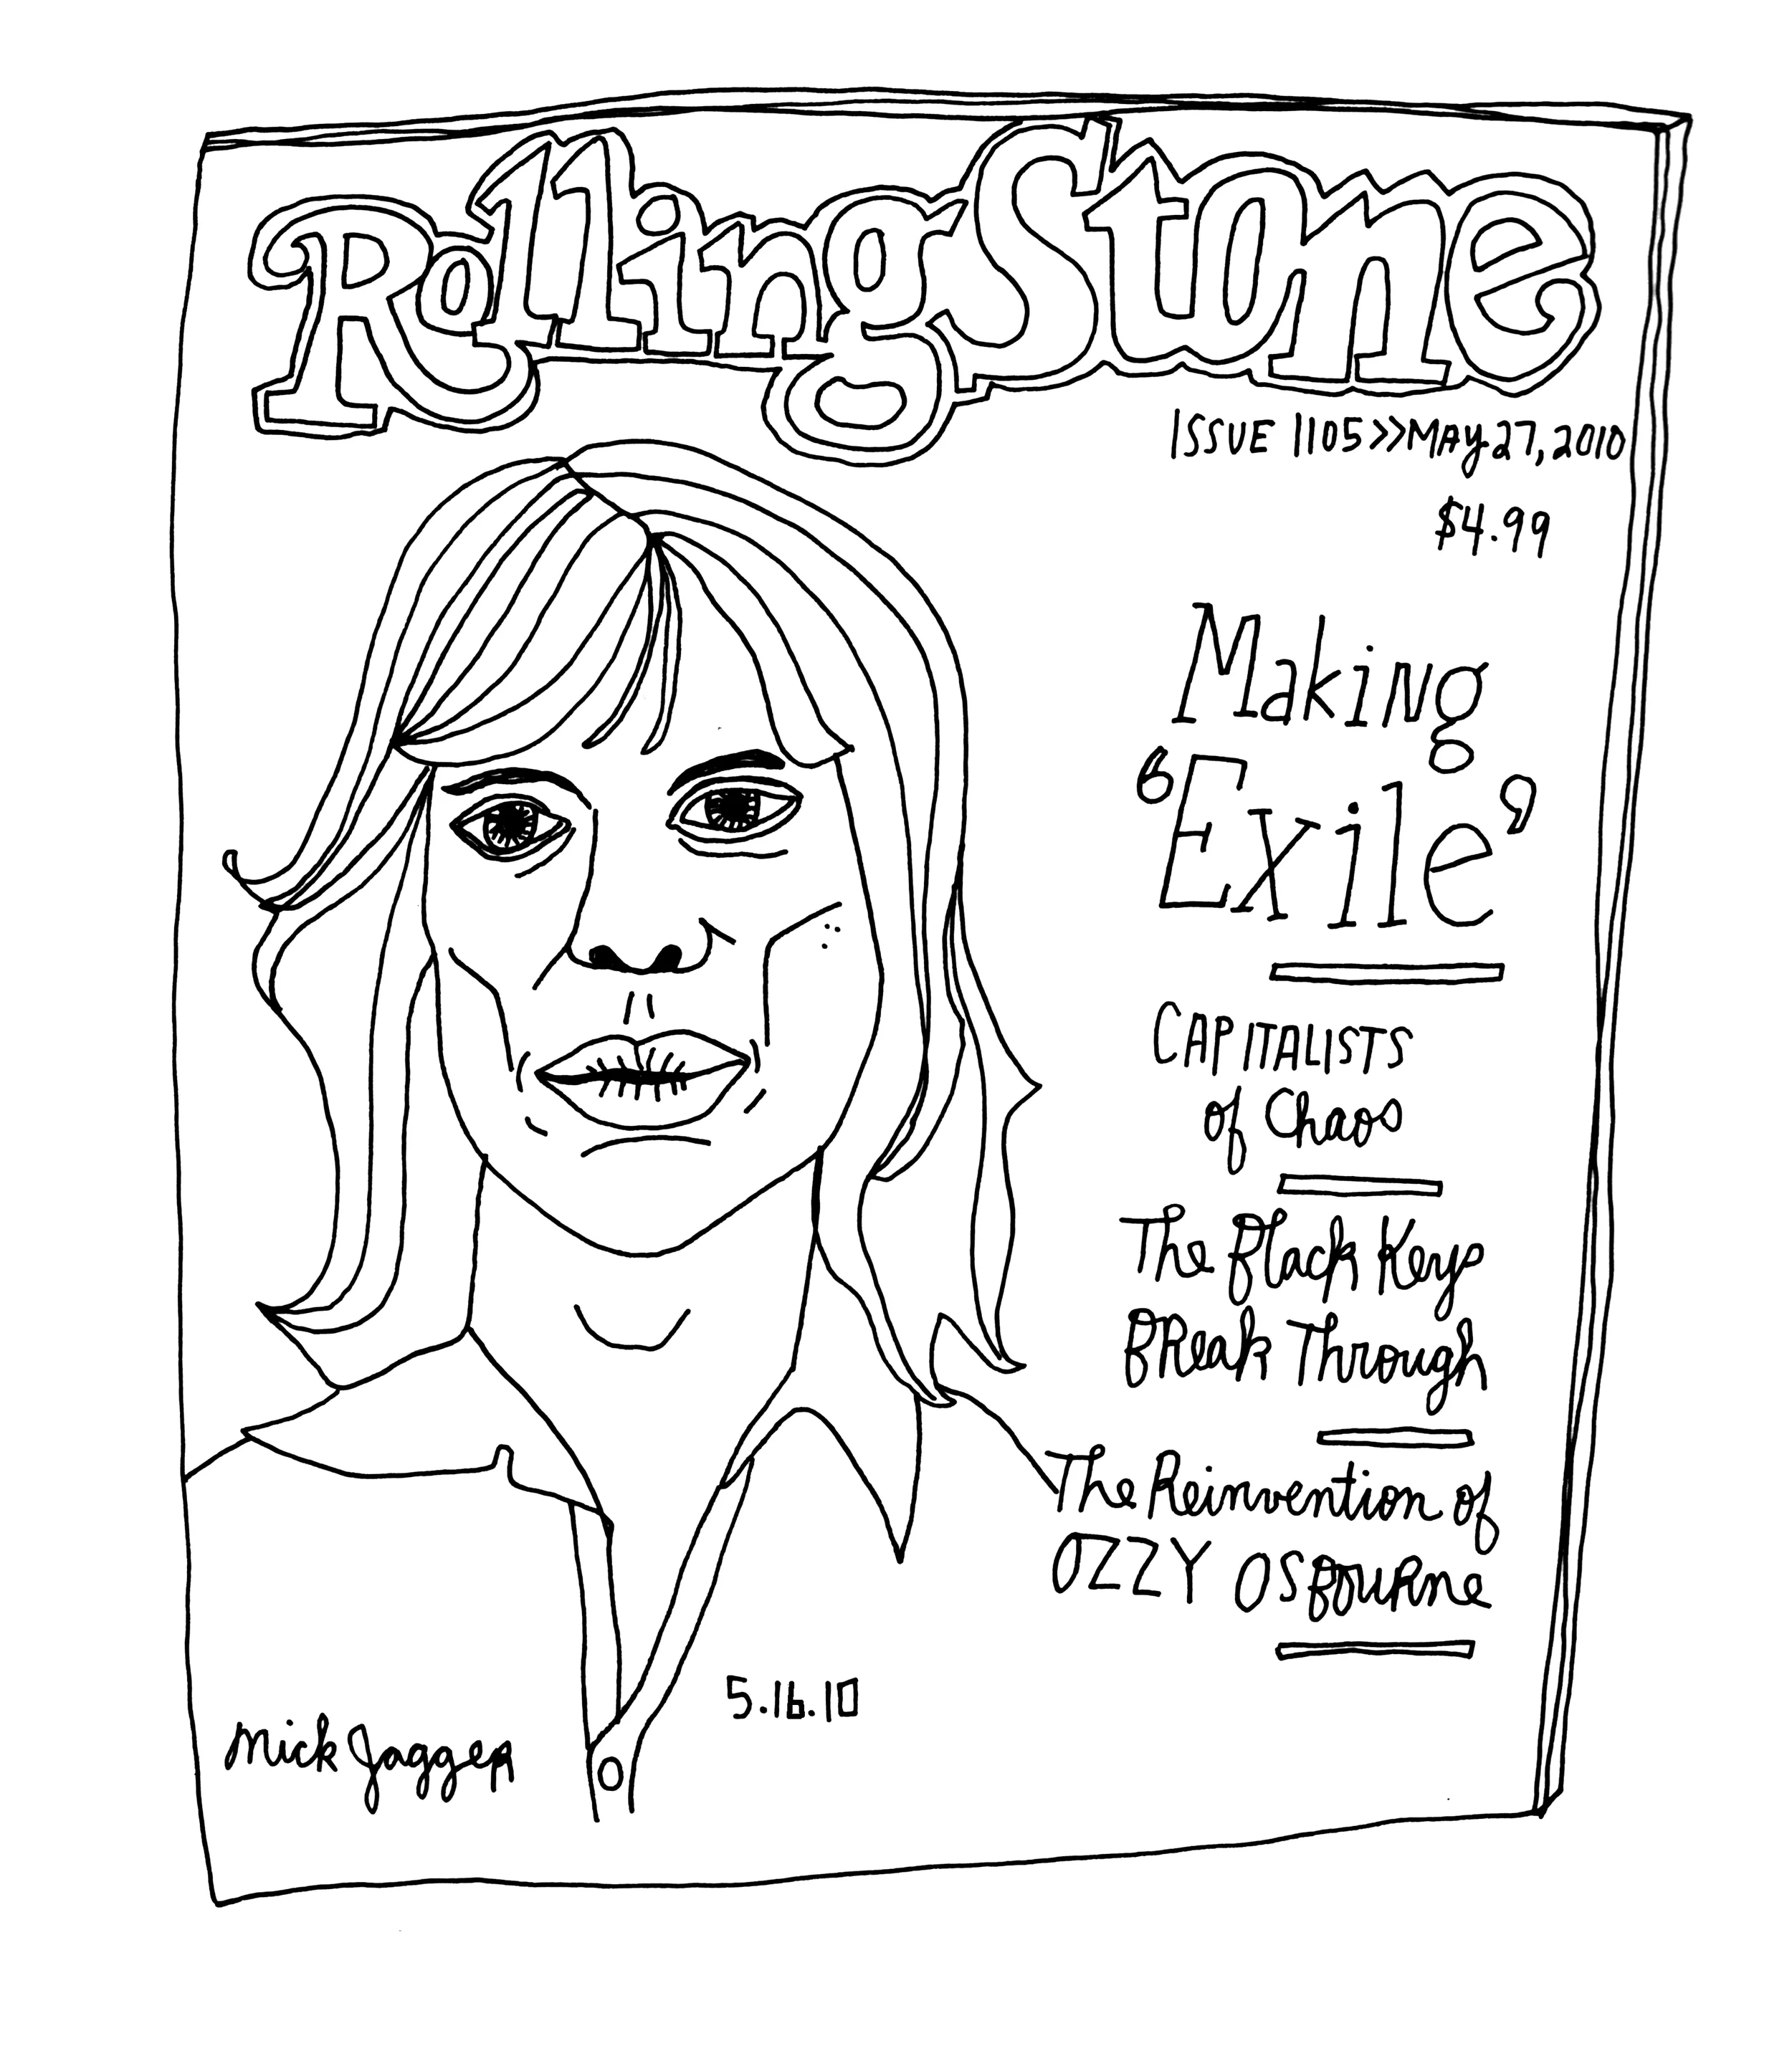 Rolling Stone
ISSUE 1105>>MAY 27, 2010
$4.99
Making
‘Exile’
CAPITALISTS
of Chaos
The Black Keys
BReak Through
The Reinvention of
OZZY OSbouRne
5.16.10
Mick JaggeR